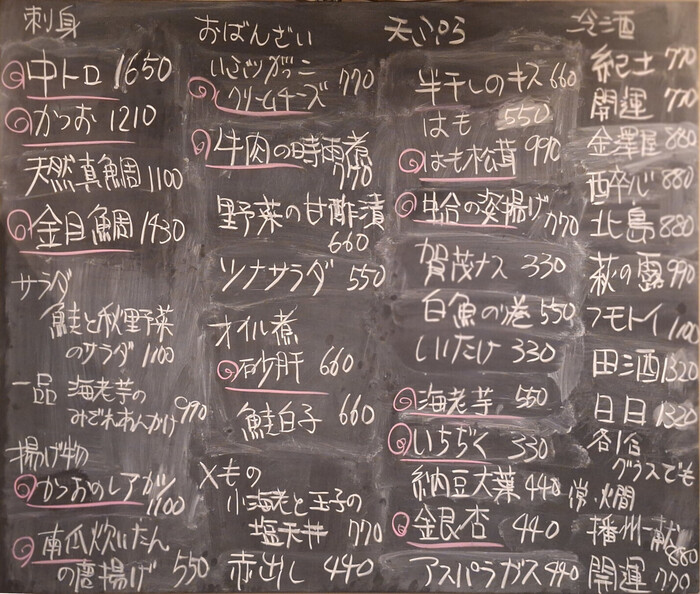 刺身
中トロ 1650
かつお 1210
天然真鯛 1100
金目鯛 1430
サラダ
鮭と秋野菜
のサラダ 1100
一品 海老芋の
みぞれあんかけ 990
揚げ物
かつおのレアカツ
1100
南瓜炊いたん
の唐揚げ 550
おばんざい
いぶりがっこ
クリームチーズ 770
牛肉の時雨煮
770
野菜の甘酢漬
660
ツナサラダ 550
オイル煮
砂肝 660
鮭白子 660
〆もの
小海老と玉子の
塩天丼 770
赤出し 440
天ぷら
半干しのキス 660
はも 550
はも松茸 990
蛤の姿揚げ 770
賀茂ナス 330
白魚の 550
しいたけ 330
海老芋 550
いちぢく 330
納豆大葉 440
金銀杏 440
アスパラガス 440
冷酒
紀土 770
開運 770
金澤屋 880
酔心 880
北島 880
萩の露 990
フモトイ 1100
田酒 1320
日日 1320
各1合
グラスでも
常・燗
播州一献 880
開運 770